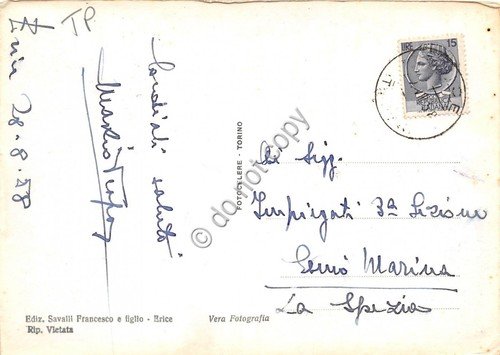 TP
Erice 28.8.58
Cordiali saluti
Mario
LIRE 15
Ai Sigg.
Impiegati 3ª Sezione
Genio Marina
La Spezia
FOTOCELERE - TORINO
Ediz. Savalli Francesco e figlio - Erice
Rip. Vietata
Vera Fotografia
© do not copy